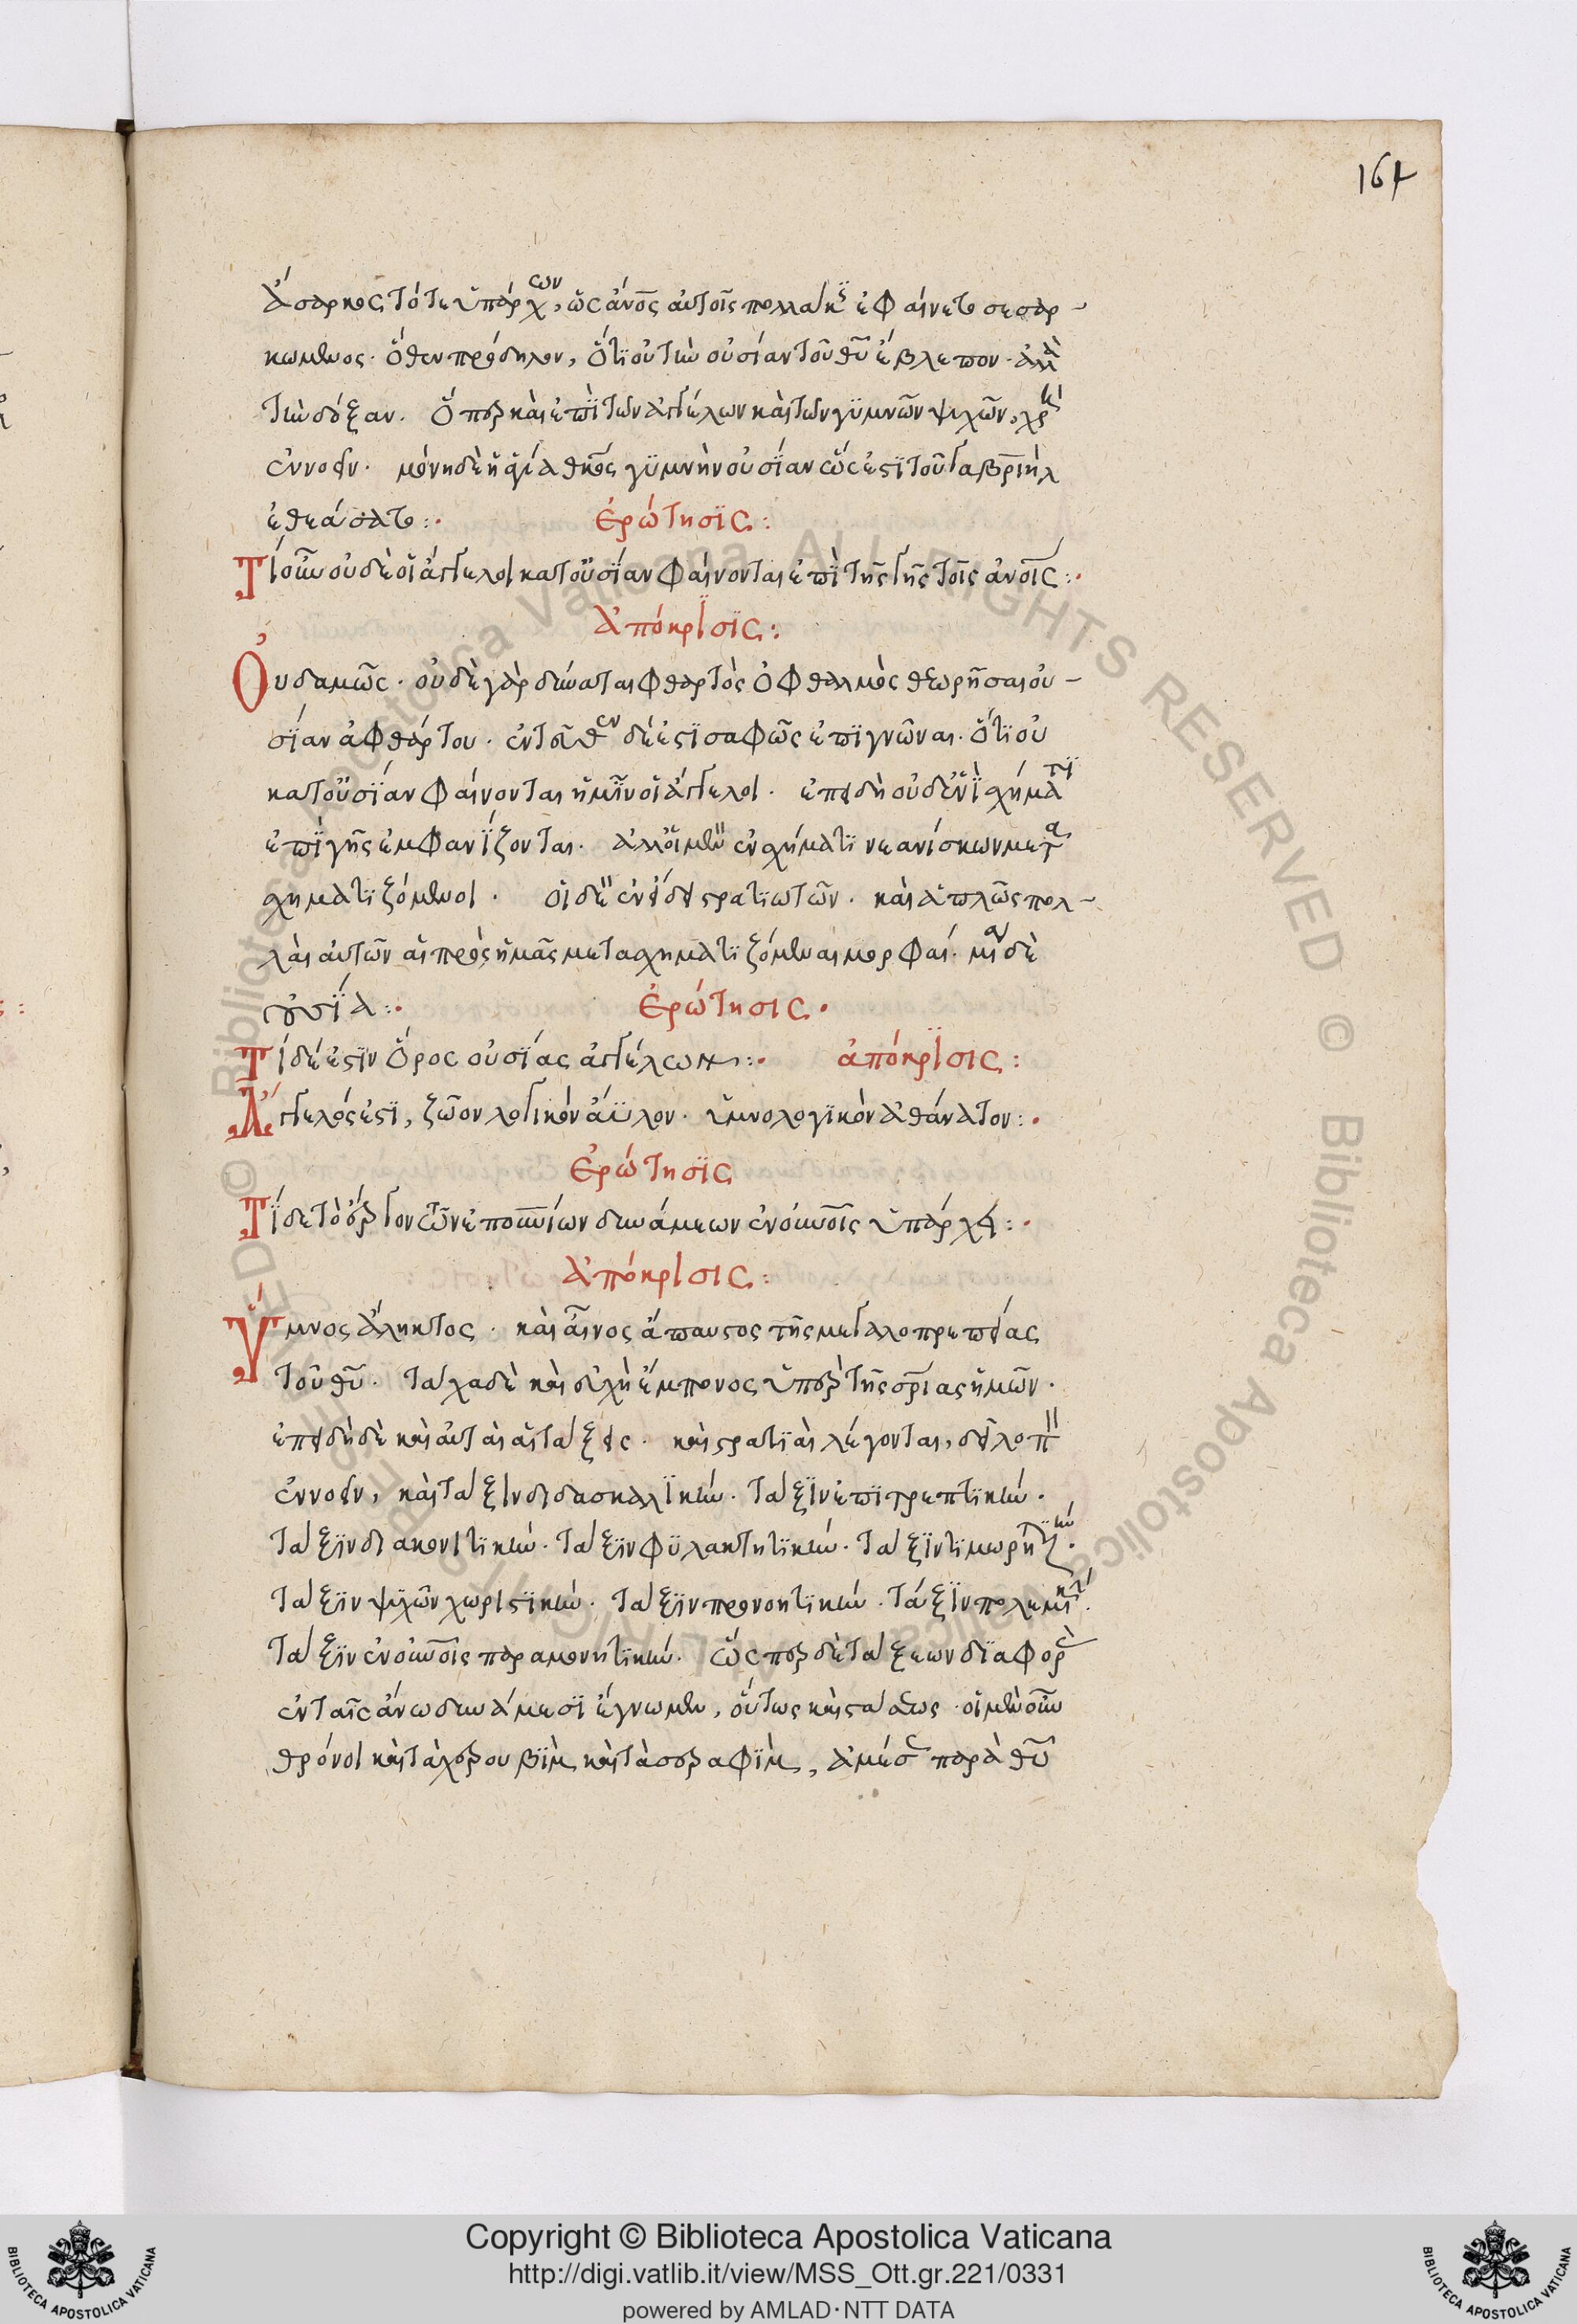 164
ἄσαρκος τότε ὑπάρχων, ὡς ἄνος αὐτοῖς πολλάκις ἐφαίνετο σεσαρ-
κωμένος. ὅθεν πρόδηλον, ὅτι οὐ τὴν οὐσίαν τοῦ θῦ ἔβλεπον. ἀλλὰ
τὴν δόξαν. ὅπερ καὶ ἐπὶ τῶν ἀγγέλων καὶ τῶν γυμνῶν ψυχῶν, χρὴ
ἐννοεῖν. μόνη δὲ ἡ ἁγία θκος γυμνὴν οὐσίαν ὡς ἐστὶ τοῦ γαβριὴλ
ἐθεάσατο:· Ἐρώτησϊς:
Τί οὖν οὐδὲ οἱ ἄγγελοι κατ' οὐσίαν φαίνονται ἐπὶ τῆς γῆς τοῖς ἀνοις:·
Ἀπόκρϊσϊς:
Οὐδαμῶς. οὐδὲ γὰρ δύναται φθαρτὸς ὀφθαλμὸς θεωρῆσαι οὐ-
σίαν ἀφθάρτου. ἐντεῦθεν δέ ἐστι σαφῶς ἐπιγνῶναι. ὅτι οὐ
κατ' οὐσίαν φαίνονται ἡμῖν οἱ ἄγγελοι. ἐπειδὴ οὐδ' ἑνὶ σχήματι
ἐπὶ γῆς ἐμφανίζονται. ἀλλ' οἱ μὲν ἐν σχήματι νεανίσκων μετα
σχηματιζόμενοι. οἱ δὲ ἐν εἴδει στρατιωτῶν. καὶ ἁπλῶς πολ-
λαὶ αὐτῶν αἱ πρὸς ἡμᾶς μετασχηματιζόμεναι μορφαί. μία δὲ
οὐσία:· Ἐρώτησις·
Τί δέ ἐστιν ὅρος οὐσίας ἀγγέλων:· ἀπόκρϊσις:
Ἄγγελός ἐστι, ζῶον λογικὸν ἄϋλον. ὑμνολογικὸν ἀθάνατον:·
Ἐρώτησϊς
Τί δε τὸ ἔργον τῶν ἐπουνίων δυνάμεων ἐν οὐνοῖς ὑπάρχει:·
Ἀπόκρϊσις:
Ὕμνος ἄληκτος. καὶ αἶνος ἄπαυστος τῆς μεγαλοπρεπείας
τοῦ θῦ. τάχα δὲ καὶ εὐχὴ ἔμπονος ὑπὲρ τῆς σρίας ἡμῶν.
ἐπειδὴ δὲ καὶ αὐταὶ αἱ τάξεις. καὶ στρατιαὶ λέγονται,
ἐννοεῖν, καὶ τάξιν διδασκαλικήν. τάξιν ἐπιτρεπτικήν.
τάξιν διακονιτικήν. τάξιν φυλακτητικήν. τάξιν τιμωρητικήν.
τάξιν ψυχῶν χωριστικήν. τάξιν προνοητικήν. τάξιν πολεμικήν.
τάξιν ἐν οὐνοῖς παραμονητικήν. ὥσπερ δὲ τάξεων διαφορὰς
ἐν ταῖς ἄνω δυνάμεσι ἔγνωμεν, οὕτως καὶ στάσεως. οἱ μὲν οὖν
θρόνοι καὶ τὰ χερουβὶμ καὶ τὰ σεραφὶμ, ἀμέσως παρὰ θῦ
Copyright © Biblioteca Apostolica Vaticana
http://digi.vatlib.it/view/MSS_Ott.gr.221/0331
powered by AMLAD·NTT DATA